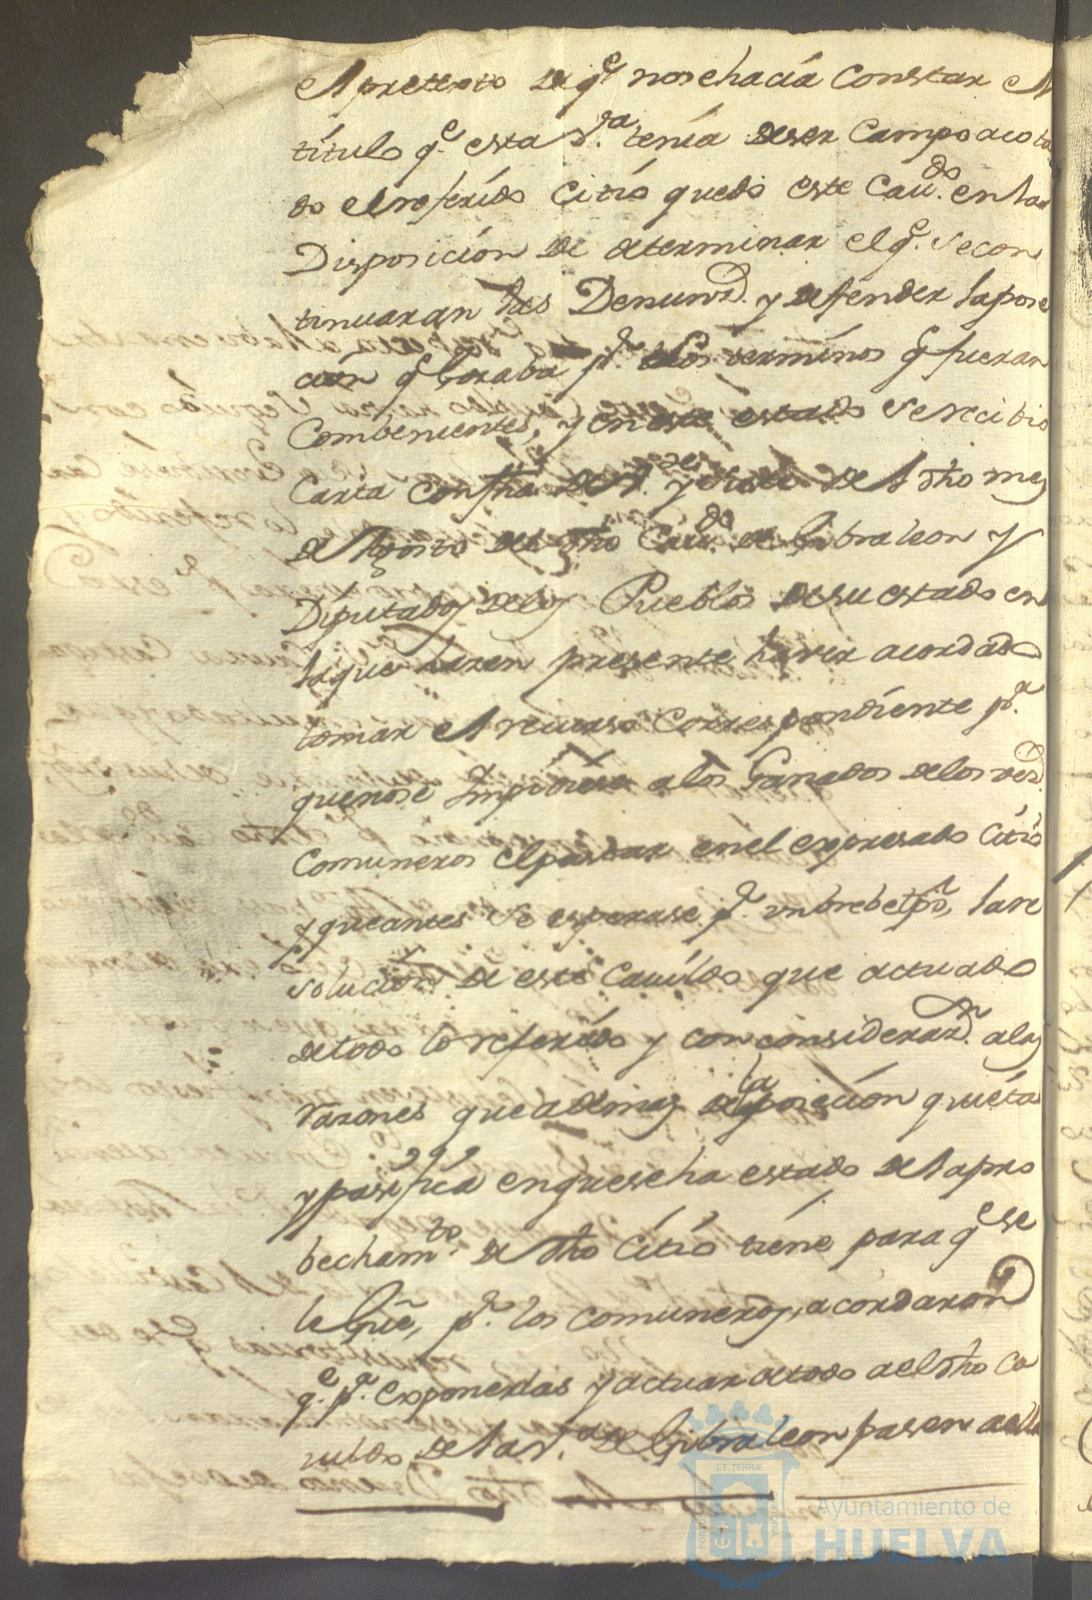 el pretexto de qe. no se hacía constar el
título qe. esta Va. tenía deser Campo acota
do el referido Citio quedo este Cavdo. en la
Disposición de determinar el qe. se con
tinuaran las Denunzs. y defender la pose
cion qe. gozaba pr. los terminos qe. fueran
Combenientes, y en este estado se recibio
Carta con fha de y siete de dho mes
de Agosto del dho Cavdo. de Gibraleon y
Diputados delos Pueblos desu estado en
la que hazen presente haver acordado
tomar el recurso correspondiente pa.
queno se Impidiese a los Ganados delos vezs.
Comuneros el pastar en el expresado Citio
y que antes se esperase pr. un brebe tpo, la re
solucion de este Cavildo que actuado
detodo lo referido y con considerazn. alas
razones que ademas dela posecion quieta
y pasifica en que se ha estado del apro
bechamto. de dho Citio tiene para qe se
le Gue, pr. los comuneros, acordaron
qe. pa. exponerlas y actuar detodo a el dho Ca
vildo de la Va. de Gibraleon pasen a ella
ET TERRÆ
Ayuntamiento de
HUELVA